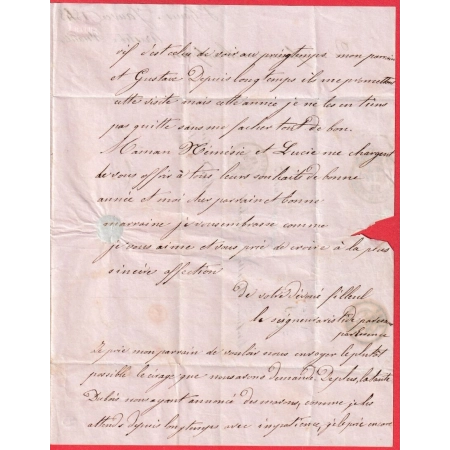 vif c'est celui de voir au printemps mon parrain
et Gustave Depuis longtemps ils me promettent
cette visite mais cette année je ne les en tiens
pas quitte sans me facher tout de bon.
Maman Némésie et Lucie me chargent
de vous offrir à tous, leurs souhaits de bonne
année et moi cher parrain et bonne
marraine je vous embrasse comme
je vous aime et vous prie de croire à la plus
sincère affection
de votre dévoué filleul
le seigneur aristide
Je prie mon parrain de vouloir nous envoyer le plutot
possible le cirage que nous avons demandé. De plus, la tante
nous ayant annoncé des oursons, comme je les
attends depuis longtemps avec impatience, je le prie encore